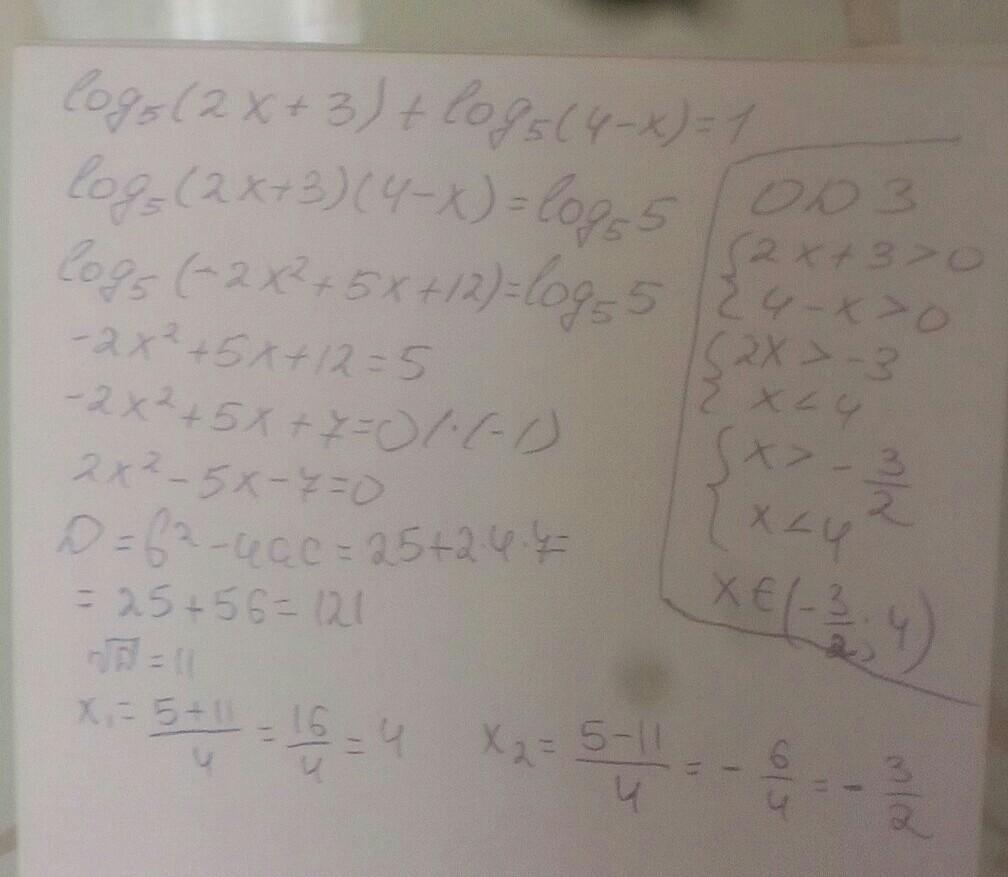 log₅(2x+3)+log₅(4-x)=1
log₅(2x+3)(4-x)=log₅5
log₅(-2x²+5x+12)=log₅5
-2x²+5x+12=5
-2x²+5x+7=0 /·(-1)
2x²-5x-7=0
D=b²-4ac=25+2·4·7=
=25+56=121
√D=11
x₁=(5+11)/4=16/4=4    x₂=(5-11)/4=-6/4=-3/2
ОДЗ
{2x+3>0
{4-x>0
{2x>-3
{x<4
{x>-3/2
{x<4
x∈(-3/2; 4)